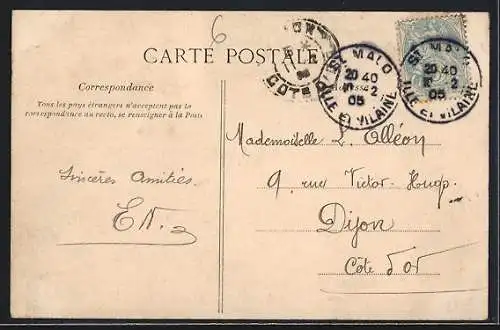 6
CARTE POSTALE
ST MALO
20 40
2
05
ILLE ET VILAINE
ST MALO
20 40
2
05
ILLE ET VILAINE
COTE
Correspondance
Tous les pays étrangers n'acceptent pas la
correspondance au recto, se renseigner à la Poste
Sincères Amitiés.
E.N.
Mademoiselle L. Olléon
9, rue Victor-Hugo.
Dijon
Côte d'Or